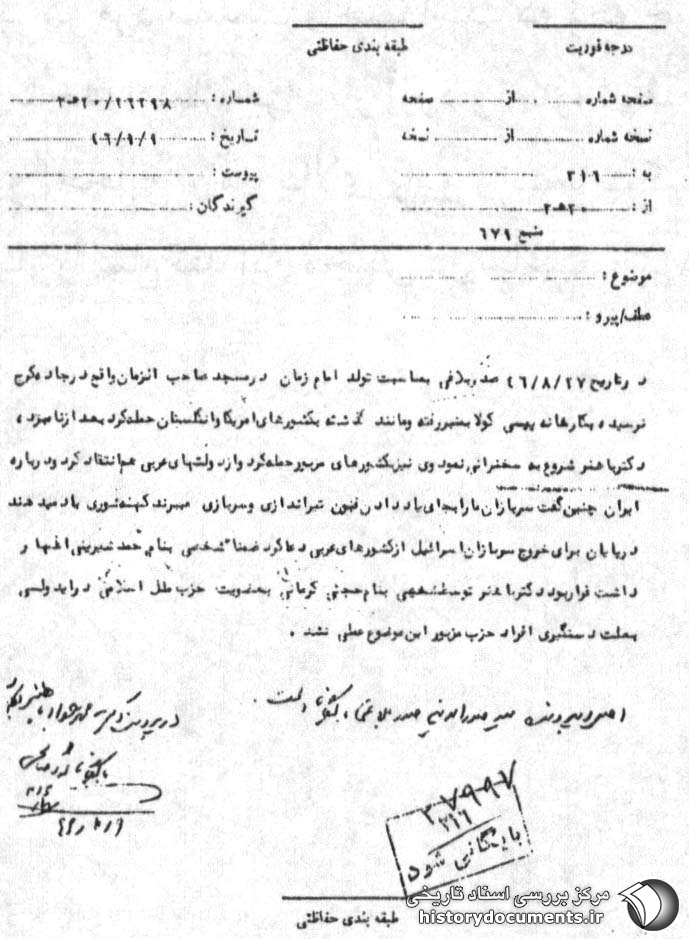 درجه فوریت
طبقه بندی حفاظتی
صفحه شماره ........ از ........ صفحه
شماره : ۲۶۲۹۸/۲۰ه۲
نسخه شماره ........ از ........ نسخه
تاریخ : ۴۶/۹/۹
به : ۳۱۶
پیوست :
از : ۲۰ه۲
گیرندگان :
منبع ۶۷۹
موضوع :
عطف/پیرو :
در تاریخ ۴۶/۸/۲۷ صدربلاغی بمناسبت تولد امام زمان در مسجد صاحب الزمان واقع در جاده کرج
نرسیده بکارخانه پپسی کولا بمنبر رفته و مانند گذشته بکشورهای امریکا و انگلستان حمله کرد بعد از نامبرده
دکتر باهنر شروع به سخنرانی نمود وی نیز بکشورهای مزبور حمله کرد و از دولتهای عربی هم انتقاد کرد و درباره
ایران چنین گفت سربازان ما را بجای یاد دادن فنون تیراندازی و سربازی میبرند کهنه شوری یاد میدهند
در پایان برای خروج سربازان اسرائیل از کشورهای عربی دعا کرد ضمنا شخصی بنام احمد شیرینی اظهار
داشت قرار بود دکتر باهنر توسط شخصی بنام حجتی کرمانی بعضویت حزب ملل اسلامی درآید ولی
بعلت دستگیری افراد حزب مزبور این موضوع عملی نشد .
اصل در پرونده سید صدرالدین صدربلاغی بایگانی است
در پرونده دکتر محمدجواد باهنر
۲۷۹۹۷
۳۱۶
بایگانی شود
طبقه بندی حفاظتی
مرکز بررسی اسناد تاریخی
historydocuments.ir